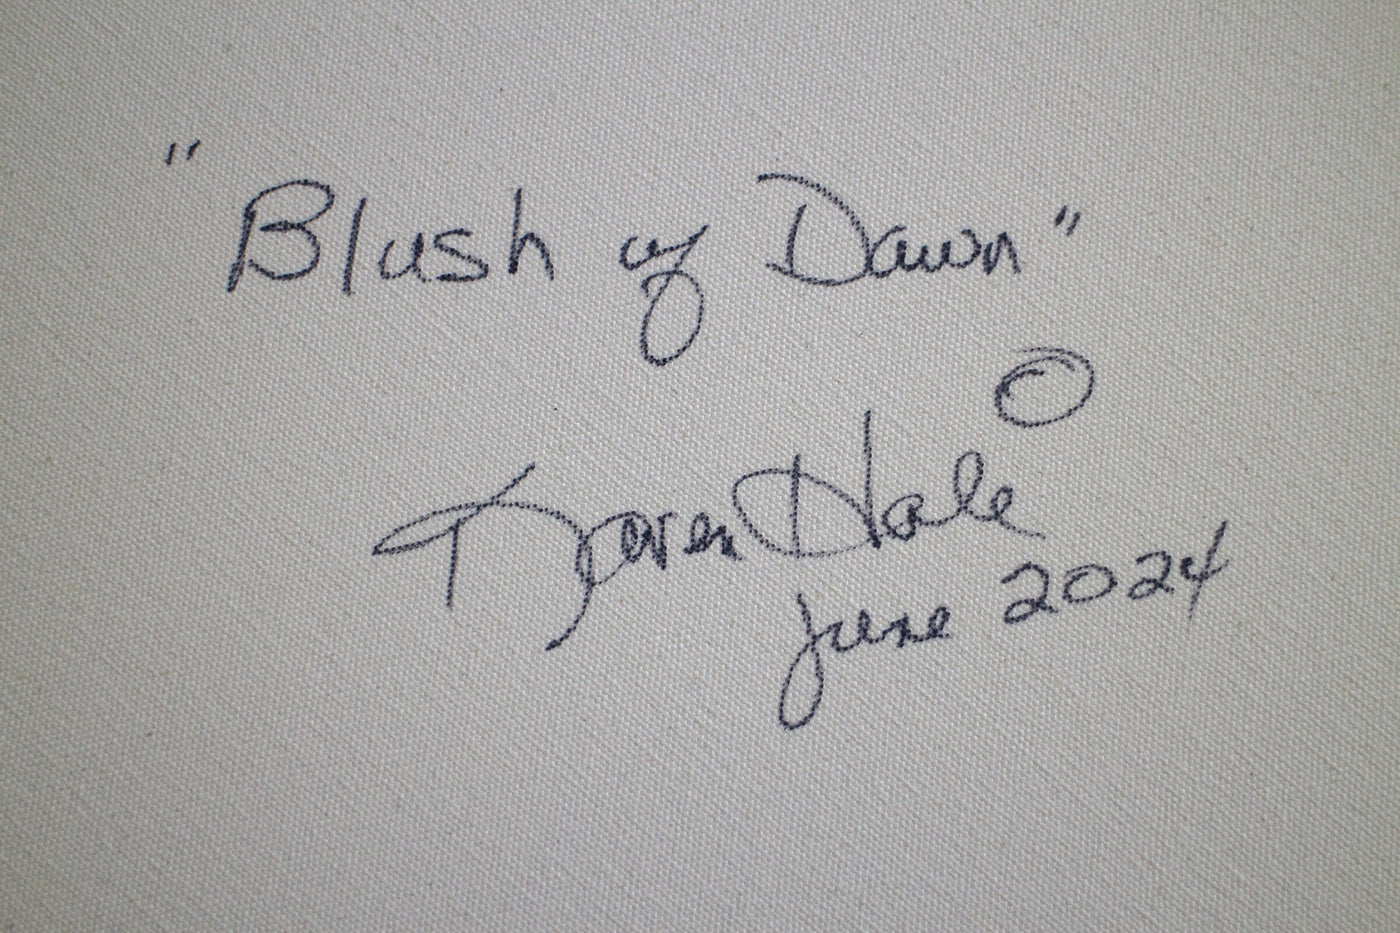 "Blush of Dawn"
©
Karen Hale
June 2024